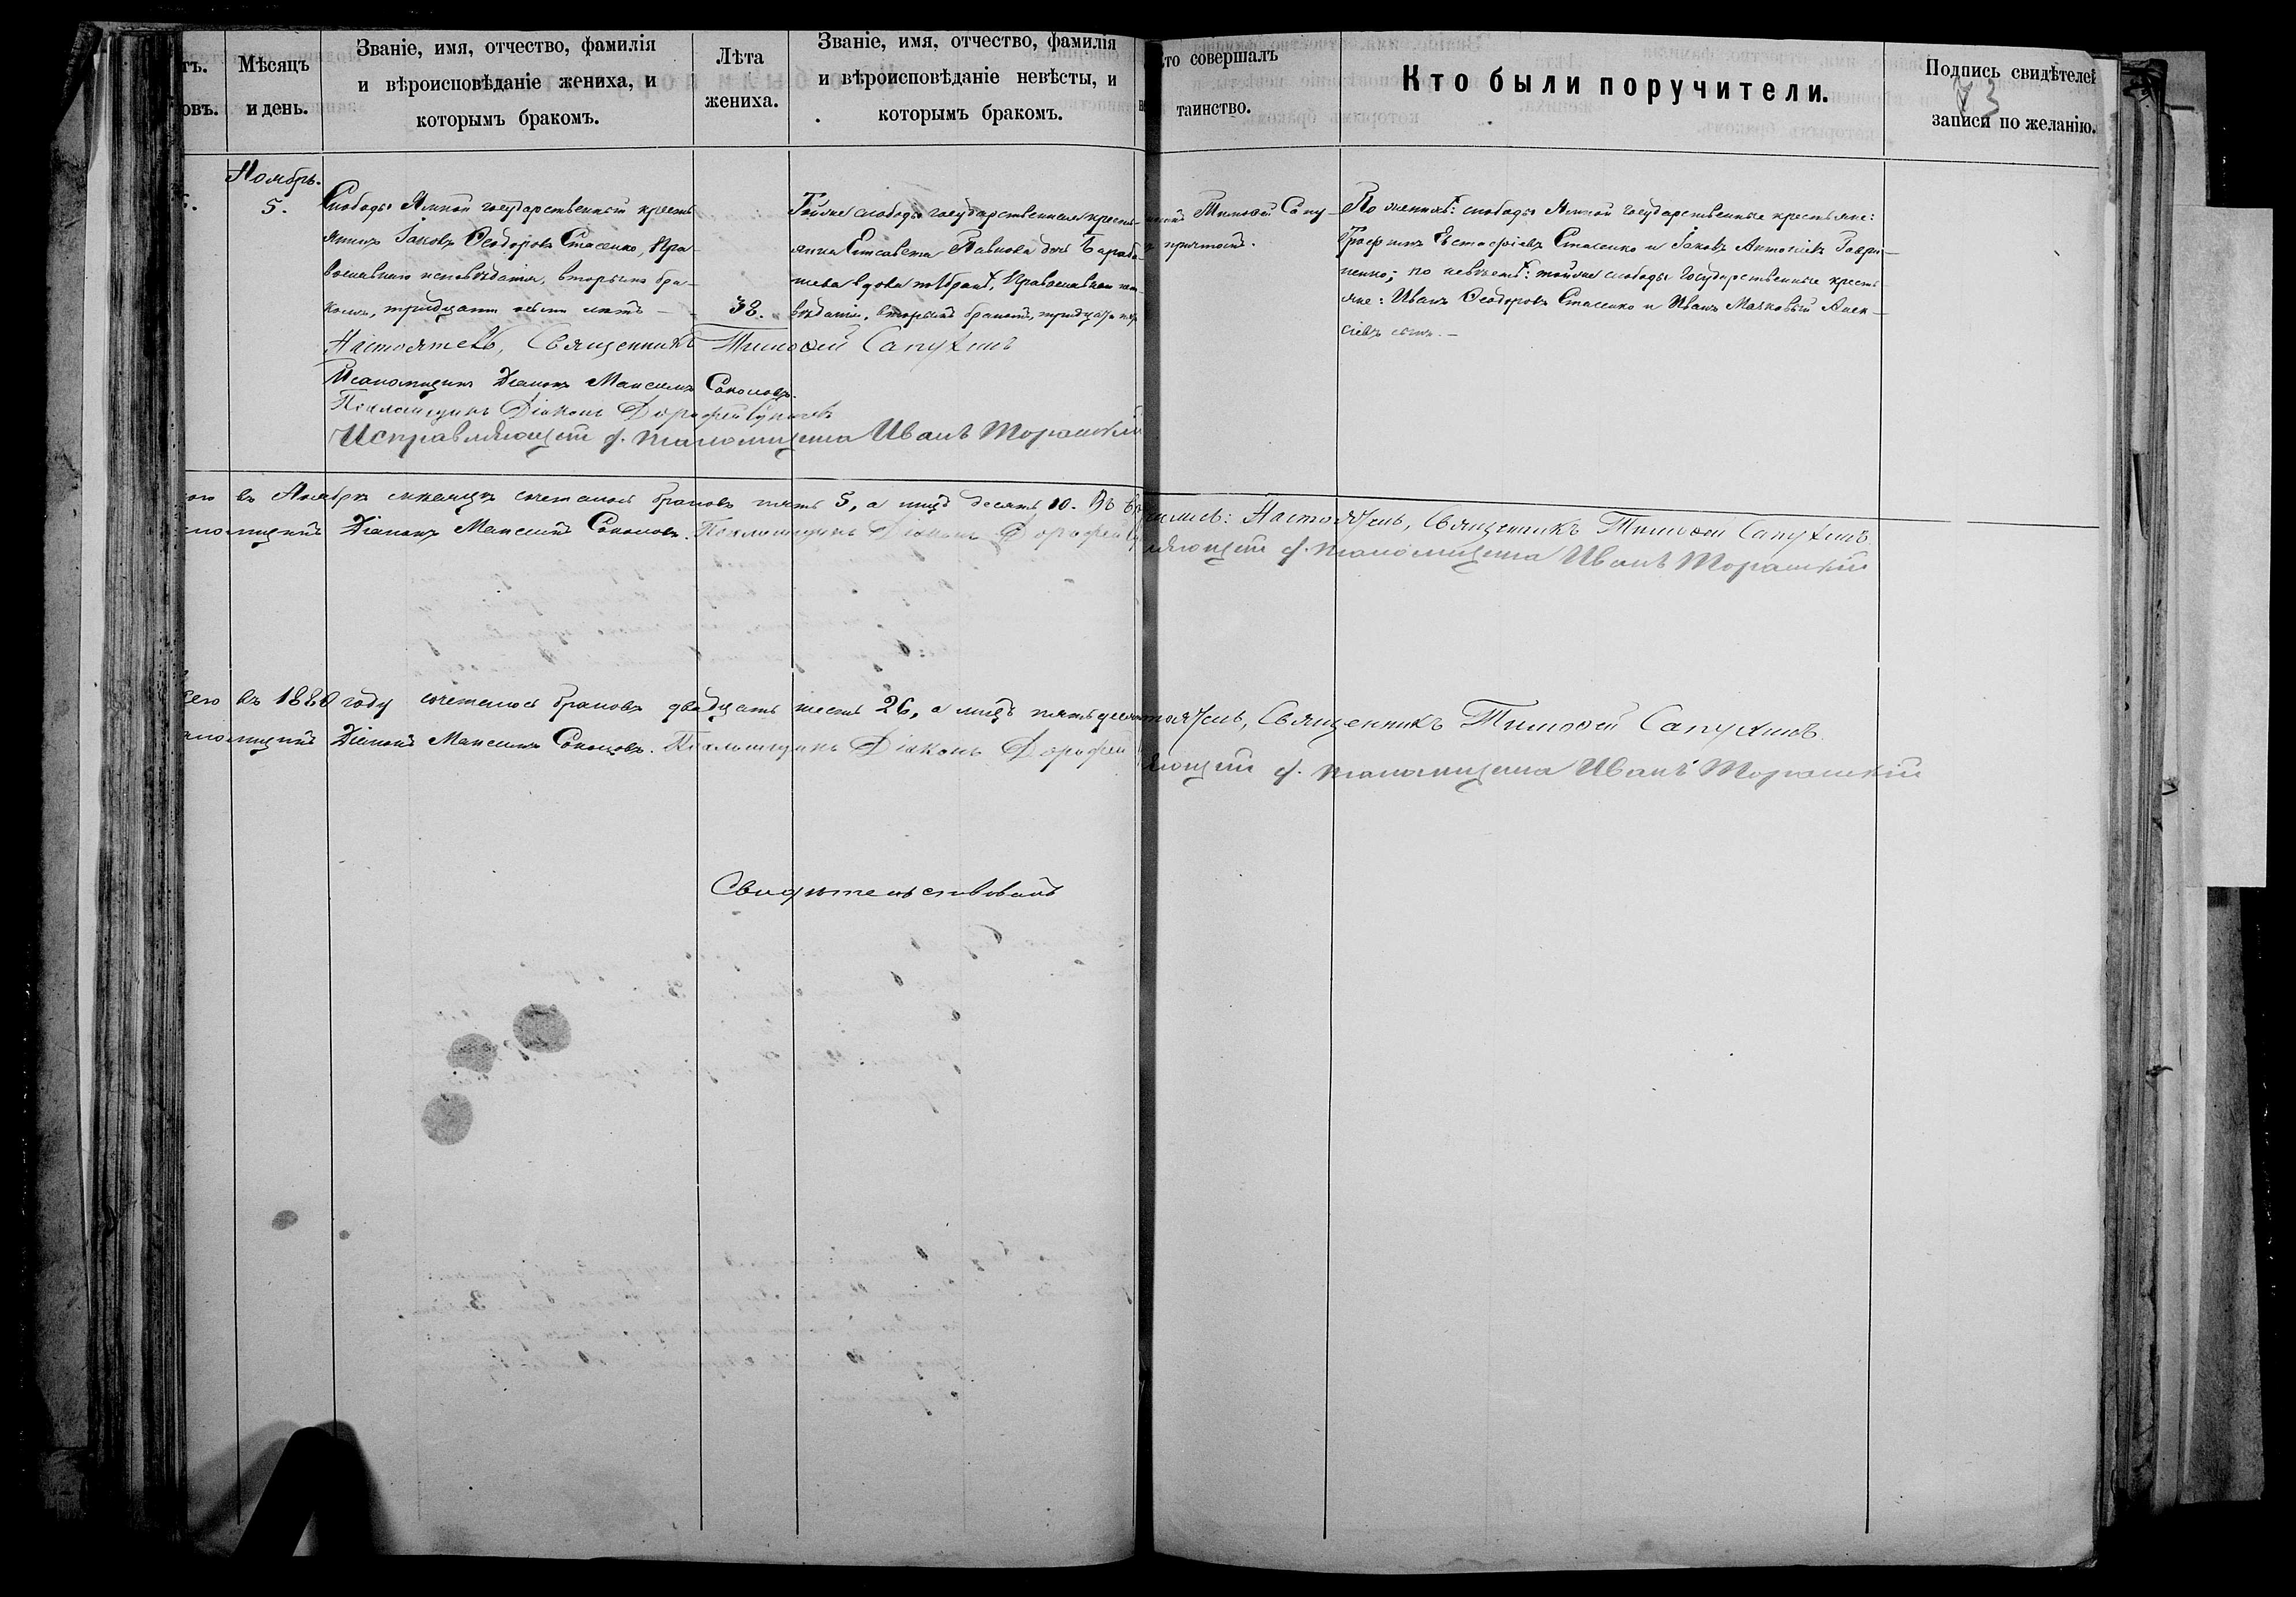 тъ.
овъ.
Мѣсяцъ
и день.
Званіе, имя, отчество, фамилія
и вѣроисповѣданіе жениха, и
которымъ бракомъ.
Лѣта
жениха.
Званіе, имя, отчество, фамилія
и вѣроисповѣданіе невѣсты, и
которымъ бракомъ.
то совершалъ
таинство.
Кто были поручители.
Подпись свидѣтелей
записи по желанію.
73
Ноябрь.
5.
Слободы Ямной государственный кресть-
янинъ Іаковъ Ѳеодоровъ Стасенко, Пра-
вославнаго исповѣданія, вторымъ бра-
комъ, тридцати восьми лѣтъ —
38.
Тойже слободы государственная кресть-
янка Елисавета Павлова дочь
вдова Православнаго
вѣданія, вторымъ бракомъ, тридцати
Тимоѳей Сапу-
По женихѣ: слободы Ямной государственные крестьяне:
Трофимъ Евстафіевъ Стасенко и Іаковъ Антоніевъ Гаври-
ленко; по невѣстѣ: тойже слободы государственные кресть-
яне: Иванъ Ѳеодоровъ Стасенко и Иванъ Маяковый Алек-
сіевъ сынъ. —
Настоятель, Священникъ Тимоѳей Сапухинъ
Псаломщикъ Діаконъ Максимъ Соколовъ.
Псаломщикъ Діаконъ Дорофей
Исправляющій д. псаломщика Иванъ Торанскій
въ Ноябрѣ мѣсяцѣ сочеталось браковъ пять 5, а лицъ десять 10. Въ
Настоятель, Священникъ Тимоѳей Сапухинъ
Діаконъ Максимъ Соколовъ. Псаломщикъ Діаконъ Дорофей
ляющій д. псаломщика Иванъ Торанскій
его въ 1880 году сочеталось браковъ двадцать шесть 26, а лицъ пятьдеся
тоятель, Священникъ Тимоѳей Сапухинъ
Діаконъ Максимъ Соколовъ. Псаломщикъ Діаконъ Дорофей
ляющій д. псаломщика Иванъ Торанскій
Свидѣтельствовалъ